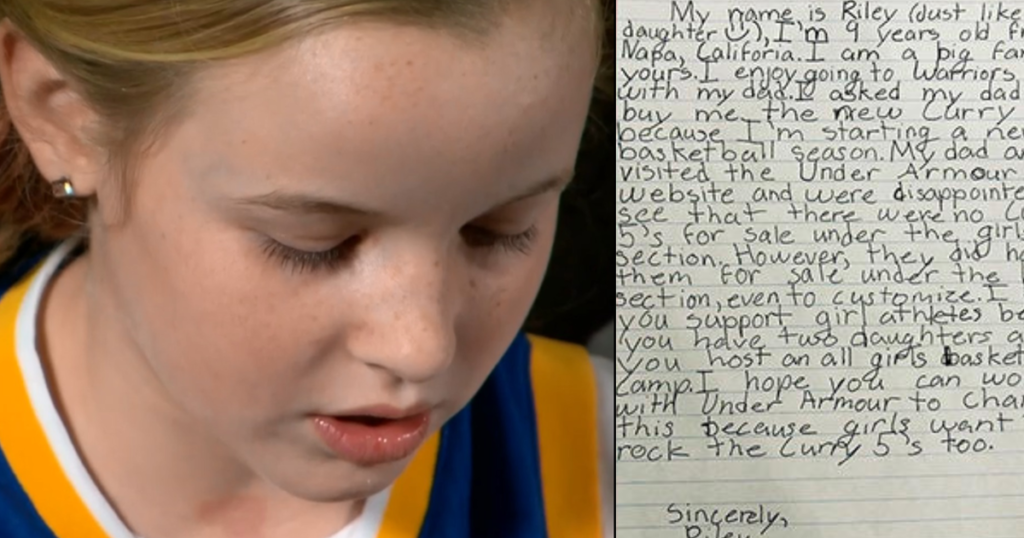 My name is Riley (just like
daughter ), I'm 9 years old
Napa, Califoria. I am a big
yours. I enjoy going to Warriors
with my dad. I asked my dad
buy me the new Curry
because I'm starting a
basketball season. My dad
visited the Under Armour
website and were
see that there were no
5's for sale under the
section. However, they did
them for sale under the
section, even to customize. I
you support girl athletes
you have two daughters
you host an all girls
camp. I hope you can
with Under Armour to
this because girls want
rock the Curry 5's too.
Sincerely,
Riley